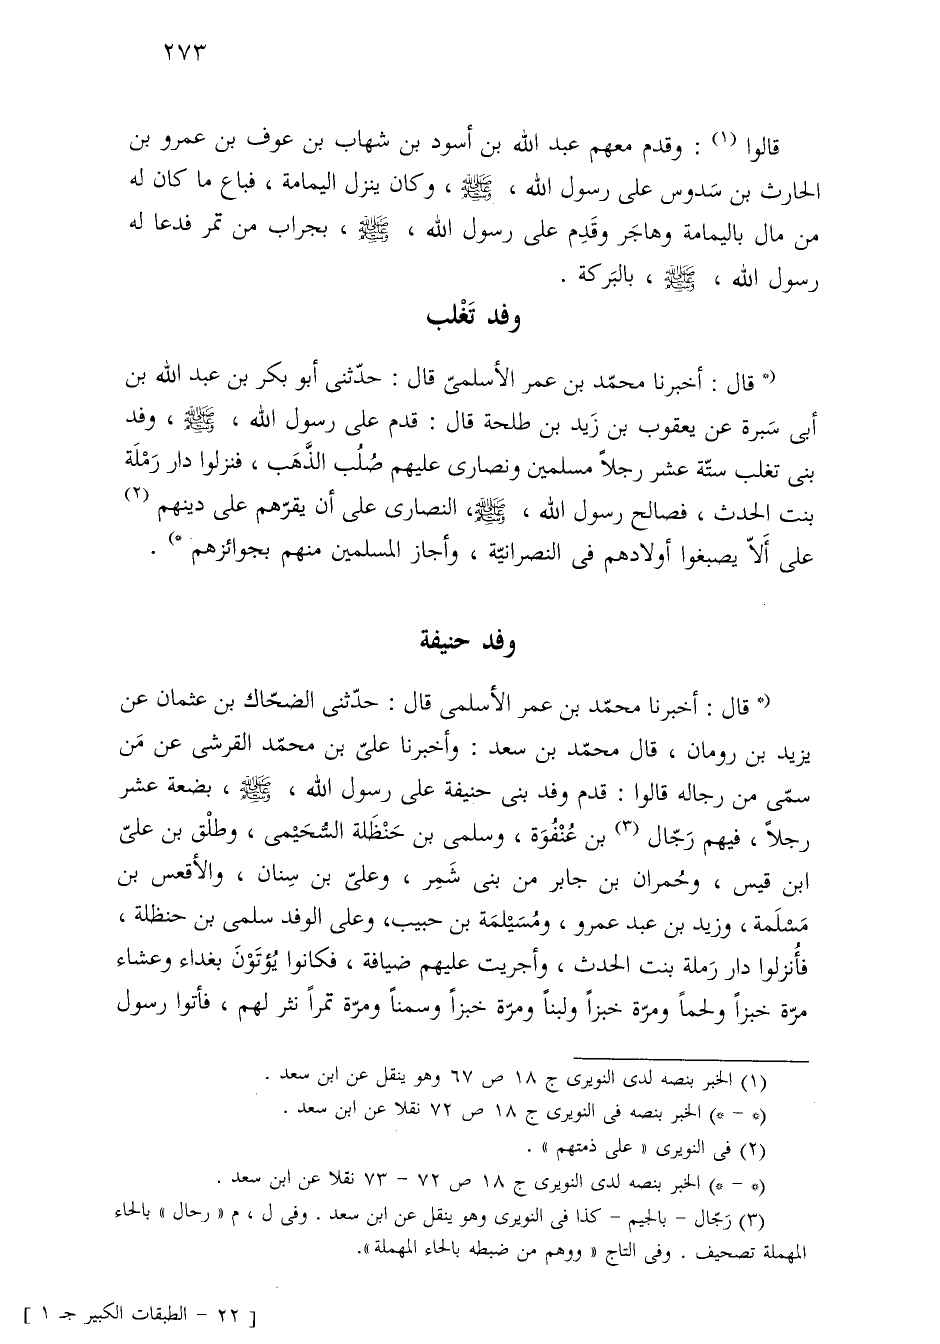 ٢٧٣
قالوا (١) : وقدم معهم عبد الله بن أسود بن شهاب بن عوف بن عمرو بن
الحارث بن سَدوس على رسول الله ، ﷺ ، وكان ينزل اليمامة ، فباع ما كان له
من مال باليمامة وهاجَر وقَدِم على رسول الله ، ﷺ ، بجراب من تمر فدعا له
رسول الله ، ﷺ ، بالبَركة .
وفد تَغْلب
(* قال : أخبرنا محمّد بن عمر الأسلمىّ قال : حدّثنى أبو بكر بن عبد الله بن
أبى سَبرة عن يعقوب بن زَيد بن طلحة قال : قدم على رسول الله ، ﷺ ، وفد
بنى تغلب ستّة عشر رجلاً مسلمين ونصارى عليهم صُلُب الذَّهَب ، فنزلوا دار رَمْلَة
بنت الحدث ، فصالح رسول الله ، ﷺ، النصارى على أن يقرّهم على دينهم (٢)
على أَلاّ يصبغوا أولادهم فى النصرانيّة ، وأجاز المسلمين منهم بجوائزهم *) .
وفد حنيفة
(* قال : أخبرنا محمّد بن عمر الأسلمى قال : حدّثنى الضحّاك بن عثمان عن
يزيد بن رومان ، قال محمّد بن سعد : وأخبرنا علىّ بن محمّد القرشى عن مَن
سمّى من رجاله قالوا : قدم وفد بنى حنيفة على رسول الله ، ﷺ ، بضعة عشر
رجلاً ، فيهم رَجّال (٣) بن عُنْفُوَة ، وسلمى بن حَنْظَلة السُّحَيْمى ، وطلْق بن علىّ
ابن قيس ، وحُمران بن جابر من بنى شَمِر ، وعلىّ بن سِنان ، والأقعس بن
مَسْلَمة ، وزيد بن عبد عمرو ، ومُسَيْلِمَة بن حبيب، وعلى الوفد سلمى بن حنظلة ،
فأُنزلوا دار رَملة بنت الحدث ، وأجريت عليهم ضيافة ، فكانوا يُؤتَوْنَ بغداء وعشاء
مرّة خبزاً ولحماً ومرّة خبزاً ولبناً ومرّة خبزاً وسمناً ومرّة تمراً نثر لهم ، فأتوا رسول
(١) الخبر بنصه لدى النويرى ج ١٨ ص ٦٧ وهو ينقل عن ابن سعد .
(* - *) الخبر بنصه فى النويرى ج ١٨ ص ٧٢ نقلا عن ابن سعد .
(٢) فى النويرى « على ذمتهم » .
(* - *) الخبر بنصه لدى النويرى ج ١٨ ص ٧٢ - ٧٣ نقلا عن ابن سعد .
(٣) رَجّال - بالجيم - كذا فى النويرى وهو ينقل عن ابن سعد . وفى ل ، م « رحال » بالحاء
المهملة تصحيف . وفى التاج « ووهم من ضبطه بالحاء المهملة ».
[ ٢٢ - الطبقات الكبير جـ ١ ]